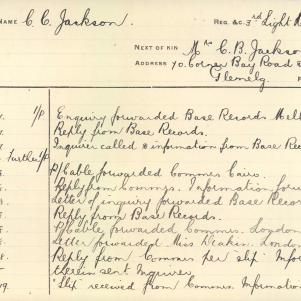 NAME C. C. Jackson. REG. &C. 3rd Light
NEXT OF KIN Mrs C. B. Jackso
ADDRESS 70. Corner Bay Road
Glenelg.
1/P Enquiry forwarded Base Records Mel
Reply from Base Records.
Inquirer called & information from Base Rec
Further 1/P
P/Cable forwarded Commrs Cairo.
Reply from Commrs. Information
Letter of inquiry forwarded Base Recor
Reply from Base Records.
P/Cable forwarded Commrs. London
Letter forwarded Miss Deakin. London
Reply from Commrs per "slip" Info
therein sent Inquirer
19. "Slip" received from Commrs. Information